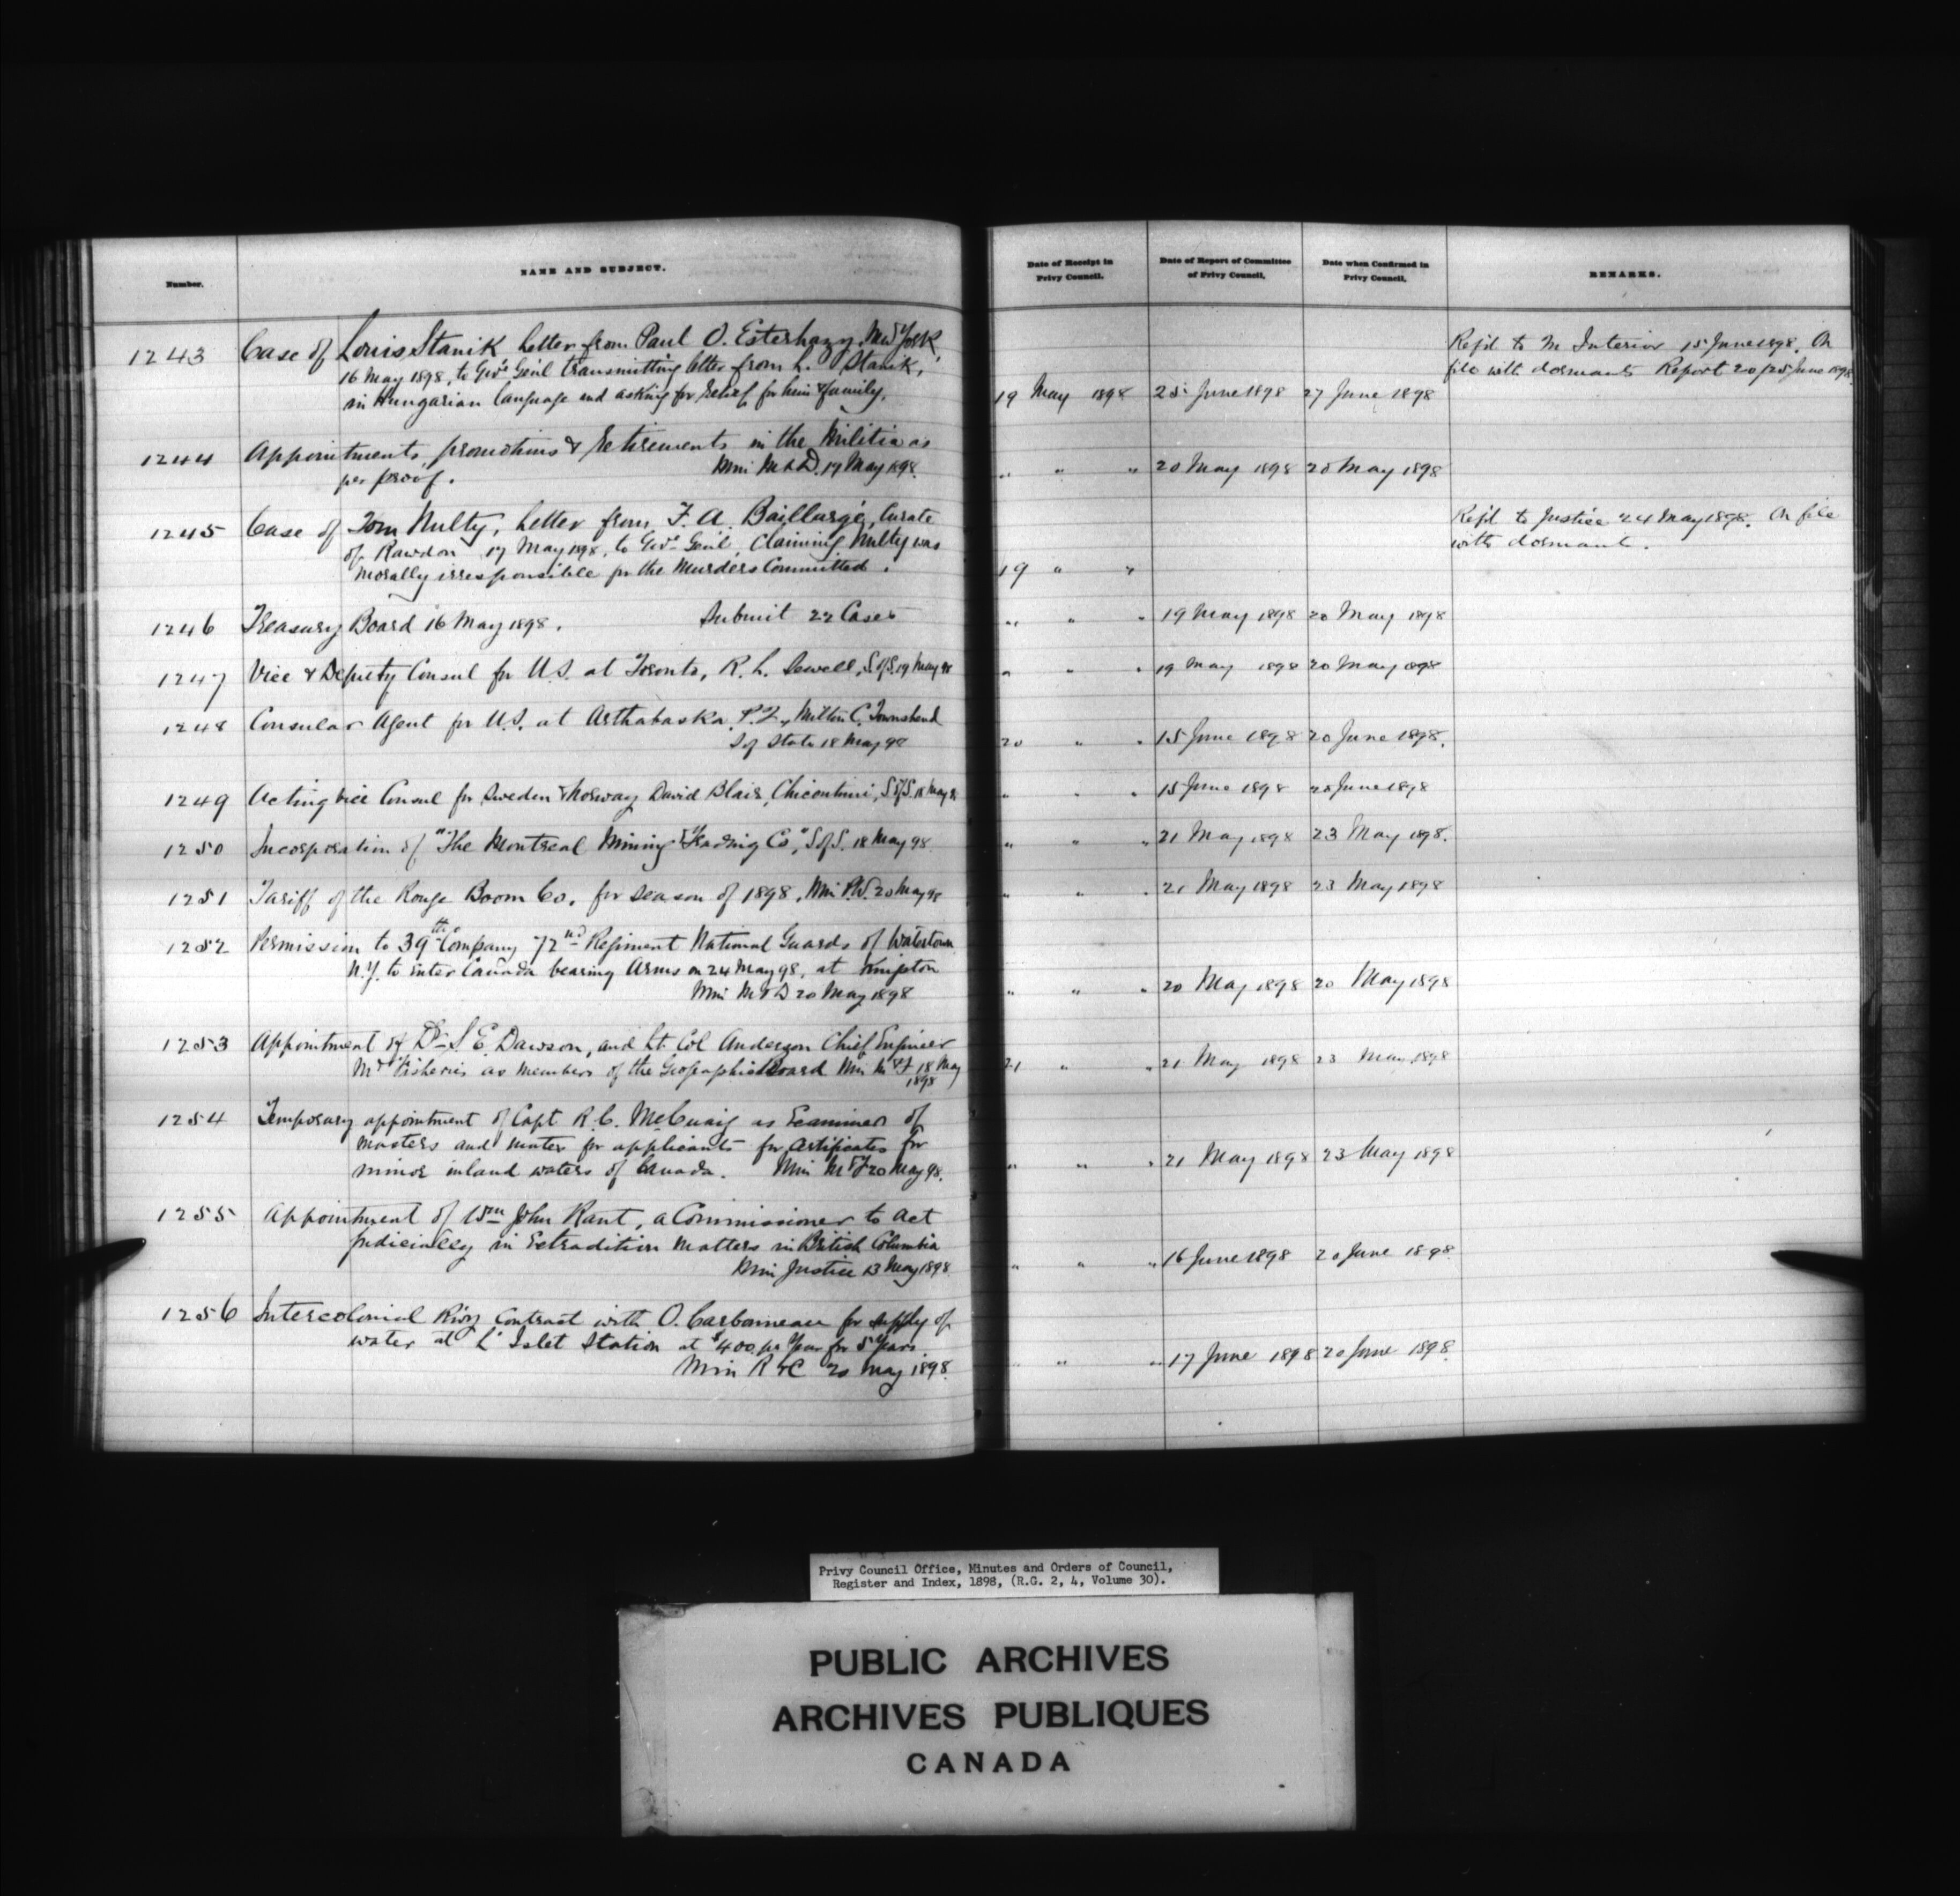 Number. NAME AND SUBJECT. Date of Receipt in Privy Council. Date of Report of Committee of Privy Council. Date when Confirmed in Privy Council. REMARKS.
1243 Case of Louis Stanik letter from Paul O. Esterhazy, New York, Ref'd to M Interior 15 June 1898. On
16 May 1898, to Govr Genl transmitting letter from L. Stanik, file with dormants Report 20/25 June 1898
in Hungarian language and asking for relief for him & family. 19 May 1898 25 June 1898 27 June 1898
1244 Appointments, promotions & retirements in the Militia as
per proof. Min M & D. 19 May 1898. " " " 20 May 1898 20 May 1898
1245 Case of Tom Nulty, letter from F. A. Baillargé, Curate Ref'd to Justice 24 May 1898. On file
of Rawdon 17 May 1898, to Govr Genl, claiming Nulty was with dormants.
morally irresponsible for the Murders Committed. 19 " "
1246 Treasury Board 16 May 1898. Submit 22 Cases " " " 19 May 1898 20 May 1898
1247 Vice & Deputy Consul for U.S. at Toronto, R. L. Sewell, S of S. 19 May 98 " " " 19 May 1898 20 May 1898
1248 Consular Agent for U.S. at Arthabaska P.Q., Milton C. Townshend
S of State 18 May 98 20 " " 15 June 1898 20 June 1898.
1249 Acting Vice Consul for Sweden & Norway David Blair, Chicoutimi, S of S. 18 May 98 " " " 15 June 1898 20 June 1898
1250 Incorporation of "The Montreal Mining & Trading Co", S of S. 18 May 98. " " " 21 May 1898 23 May 1898.
1251 Tariff of the Rouge Boom Co. for season of 1898, Min P.W. 20 May 98 " " " 21 May 1898 23 May 1898
1252 Permission to 39th Company 72nd Regiment National Guards of Watertown
N.Y. to enter Canada bearing Arms on 24 May 98, at Kingston
Min M & D 20 May 1898 " " " 20 May 1898 20 May 1898
1253 Appointment of Dr S. E. Dawson, and Lt. Col Anderson Chief Engineer
Fisheries as members of the Geographic Board Min M & F 18 May 1898 21 " " 21 May 1898 23 May 1898
1254 Temporary appointment of Capt R. C. McCuaig as Examiner of
masters and mates for applicants for certificates for
minor inland waters of Canada. Min M & F 20 May 98. " " " 21 May 1898 23 May 1898
1255 Appointment of Wm John Rant, a Commissioner to act
judicially in Extradition Matters in British Columbia
Min Justice 13 May 1898 " " " 16 June 1898 20 June 1898
1256 Intercolonial Rlwy Contract with O. Carbonneau for supply of
water at L'Islet Station at $400. per Year for 5 Years.
Min R & C 20 May 1898. " " " 17 June 1898 20 June 1898.
Privy Council Office, Minutes and Orders of Council,
Register and Index, 1898, (R.G. 2, 4, Volume 30).
PUBLIC ARCHIVES
ARCHIVES PUBLIQUES
CANADA